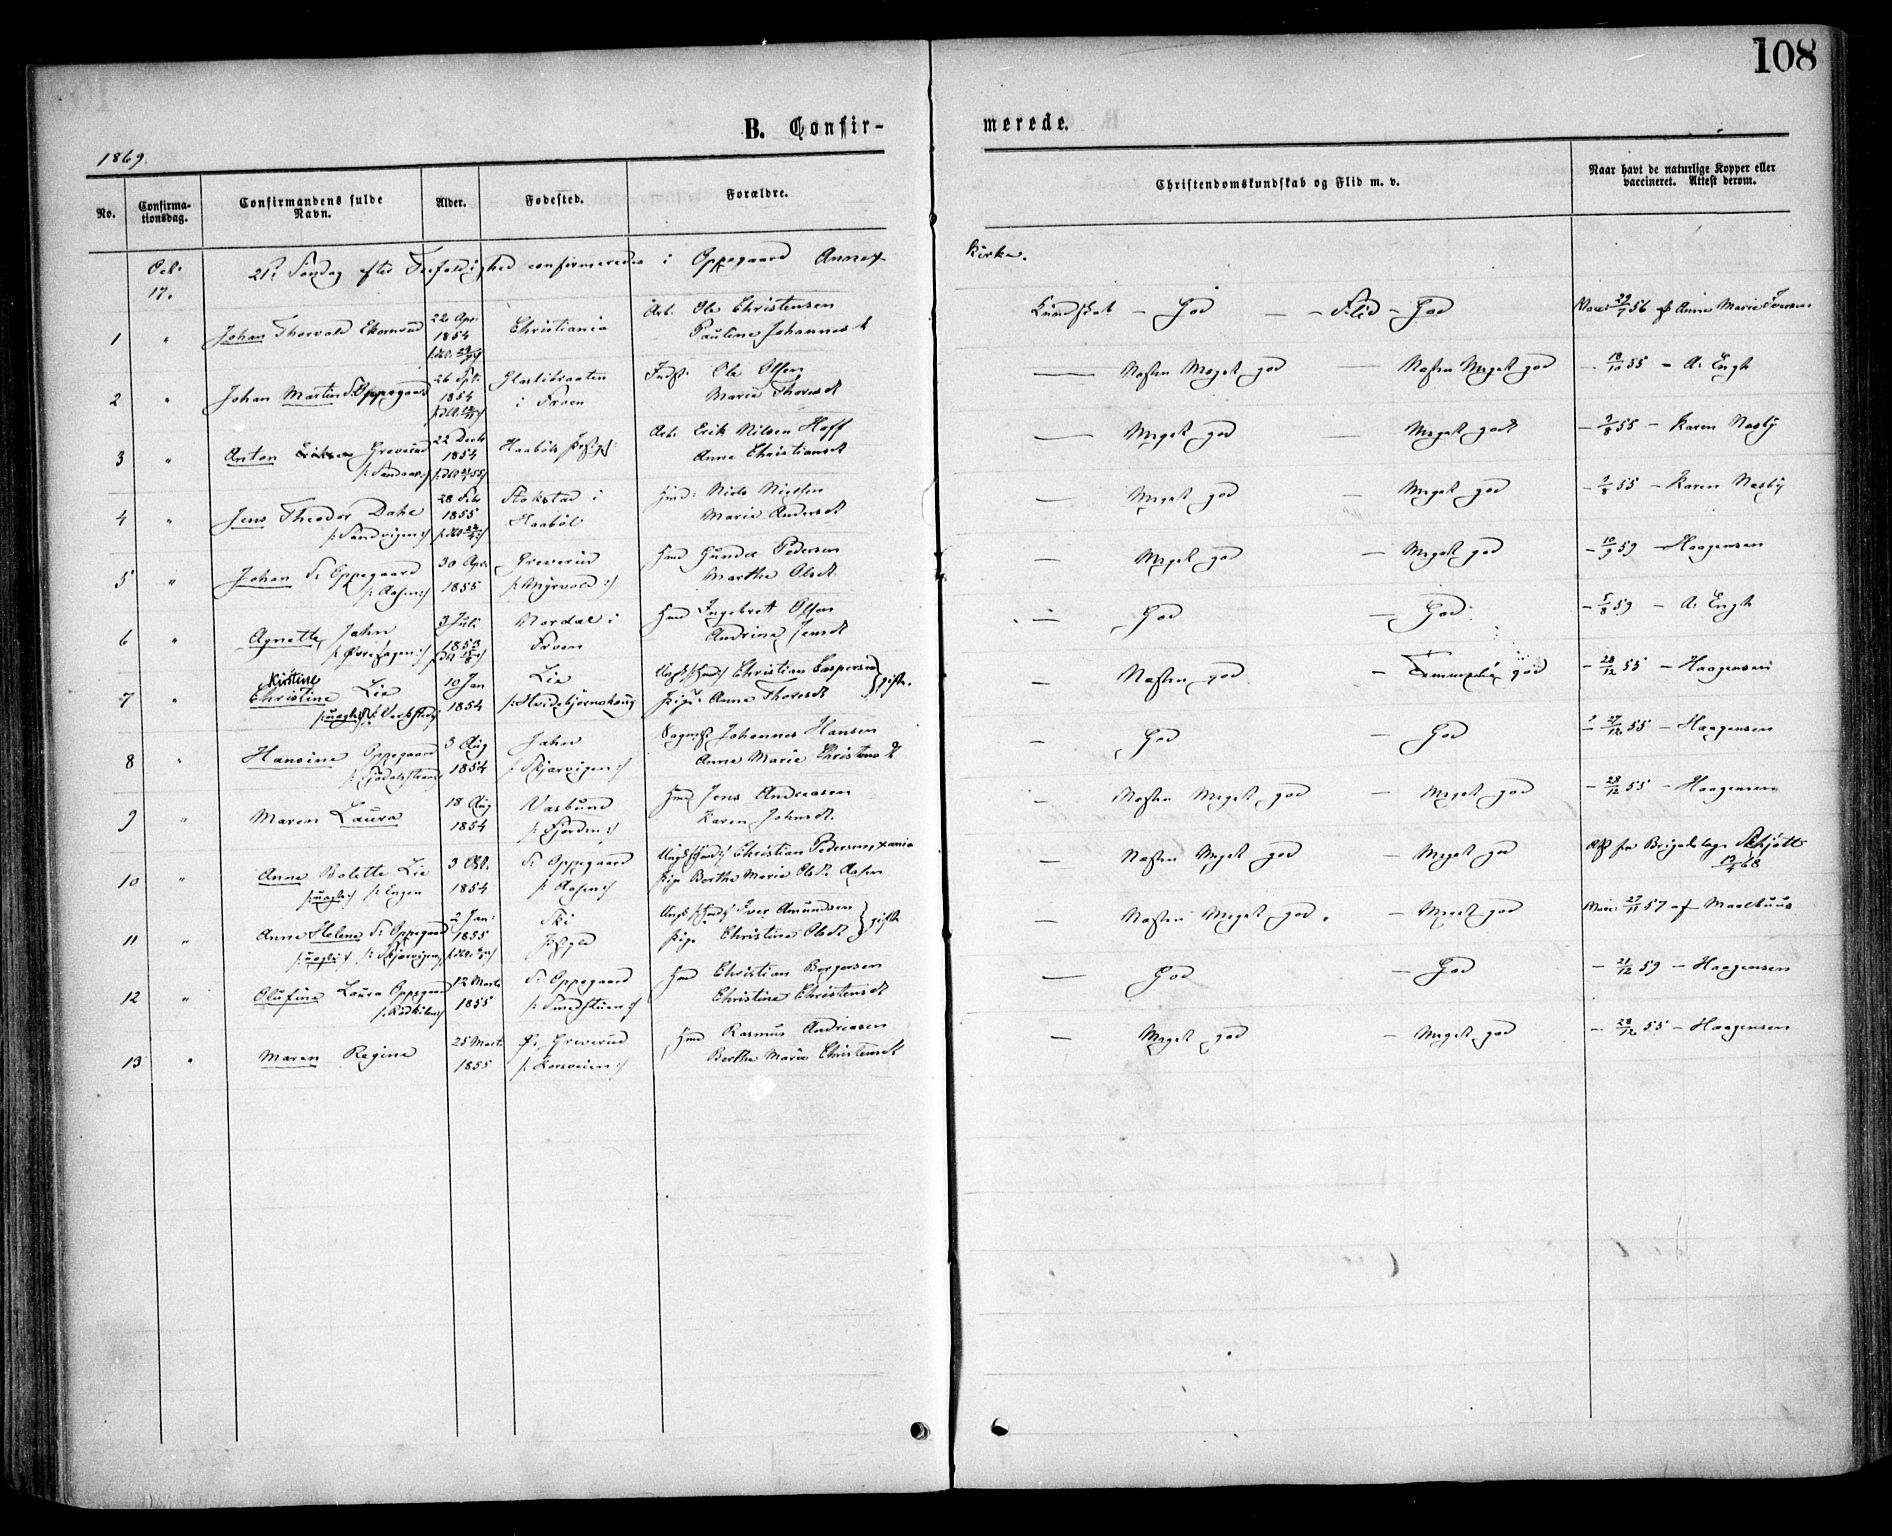 108
B. Confir- merede.
1869.
No. Confirma-tionsdag. Confirmandens fulde Navn. Alder. Fødested. Forældre. Christendomskundskab og Flid m. v. Naar havt de naturlige Kopper eller vaccineret. Attest derom.
Oct. 17. 21de Søndag efter Trefoldighed confirmerede i Oppegaard Annex Kirke.
1 " Johan Thorvald 22 Apr. Christiania Arb. Ole Christensen Kundskab – God – – Flid – God Vacc 29/7 56 af Anne Marie Iversen
1854 Pauline Johannesd
2 " Johan Martin S. Oppegaard 26 Spt. Glaslibraaten Inds. Ole Olsen — Næsten Meget god — Næsten Meget god – 18/10 55 – A. Engh
1854 i Froen Marie Thoresdt
3 " Anton Greverud 22 Decbr Haabøls Præstgj: Arb. Erik Nilsen Hoff — Meget god — Meget god – 9/8 55 – Karen Næsby
1854 Anne Christiansdt
4 " Jens Theodor Dahl 28 Febr Stokstad i Hmd: Niels Nielsen — Meget god — Meget god – 9/8 55 – Karen Næsby
/: Sandvigen :/ 1855 Haabøl Marie Andersdt
5 " Johan S. Oppegaard 30 Apr. Greverud Hmd Gunder Pedersen – Meget god – Meget god – 10/9 59 – Haagensen
/: Aasen :/ 1855 /: Myrvold :/ Marthe Olsdt
6 " Agnette Jahn 3 Juli Nordal i Hmd Ingebret Olsen – God – God – 5/8 59 – A. Engh
/: Øvre Hagen :/ 1853 Froen Andrine Jensdt
Kirstine
7 " Christine Lie 10 Jan Lie Ungk Christian Caspersen } gifte. – Næsten god – Temmelig god – 28/12 55 – Haagensen
/: uægte :/ 1854 /: Hvidebjørnshoug Pige Anne Thoresdt
8 " Hansine Oppegaard 3 Aug Jahn Sagm. Johannes Hansen – God – God – 27/12 55 – Haagensen
1854 /: Skjærvigen :/ Anne Marie Christensdt
9 " Maren Laura 18 Aug Vasbund Hmd Jens Andreasen – Næsten Meget god – Meget god – 28/12 55 – Haagensen
1854 /: Fjorden :/ Karen Johnsdt.
10 " Anne Bolette Lie 3 Oct. S. Oppegaard Ungk Christian Pedersen, xania – Næsten Meget god – Meget god Att. fra Brigadelæge Schjøtt
/: uægte :/ /: Engen 1854 /: Aasen :/ Pige Berthe Marie Olsdt Aasen 13/4 68
11 " Anne Helene S. Oppegaard 2 Jan: Ski Ungk Iver Amundsen } gifte – Næsten Meget god. – Meget god Vacc 27/11 57 af Maalkuus
/: uægte :/ /: Skjærvigen 1855 Pige Christine Olsdt
12 " Olufine Laura Oppegaard 12 Marts S. Oppegaard Hmd Christian Borgersen — God – God – 21/12 59 – Haagensen
/: Kodkilen :/ 1855 /: Smedstuen :/ Christine Christensdt
13 " Maren Regine 25 Marts Ø. Greverud Hmd Rasmus Andreasen – Meget god – Meget god – 28/12 55 – Haagensen
1855 /: Korsveien :/ Berthe Marie Christensdt